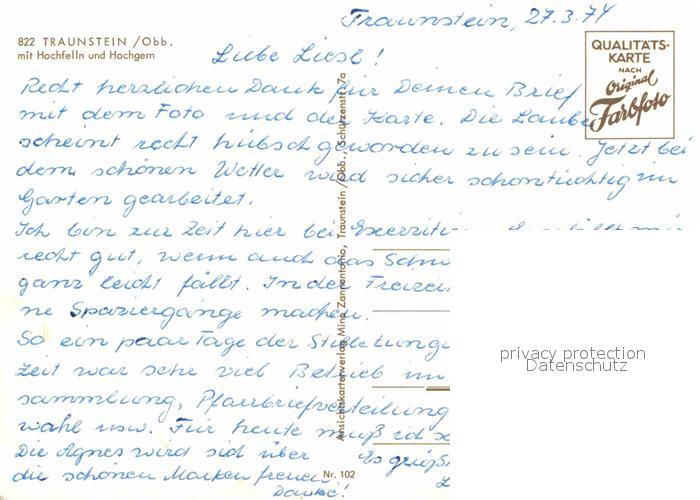 Traunstein, 27.3.74
822 TRAUNSTEIN /Obb.
mit Hochfelln und Hochgern
QUALITÄTS-
KARTE
NACH
Original
Farbfoto
Liebe Liesl!
Recht herzlichen Dank für Deinen Brief
mit dem Foto und der Karte. Die Laube
scheint recht hübsch geworden zu sein. Jetzt bei
dem schönen Wetter wird sicher schon tüchtig im
Garten gearbeitet.
Ich bin zur Zeit hier bei
recht gut, wenn auch das
ganz leicht fällt. In der
ne Spaziergänge machen.
So ein paar Tage der Stille tun
Zeit war sehr viel Betrieb im
sammlung, Pfarrbriefverteilung
wahl usw. Für heute muß ich
Die Agnes wird sich über
die schönen Marken freuen.
Danke!
Es
Ansichtskartenverlag Mina Zannantonio, Traunstein /Obb., Schützenstr. 7a
Nr. 102
privacy protection
Datenschutz